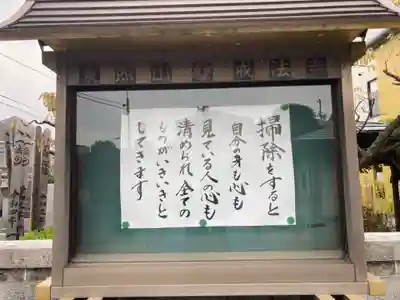 掃除をすると
自分の身も心も
見ている人の心も
清められ、全ての
ものがいきいきと
してきます